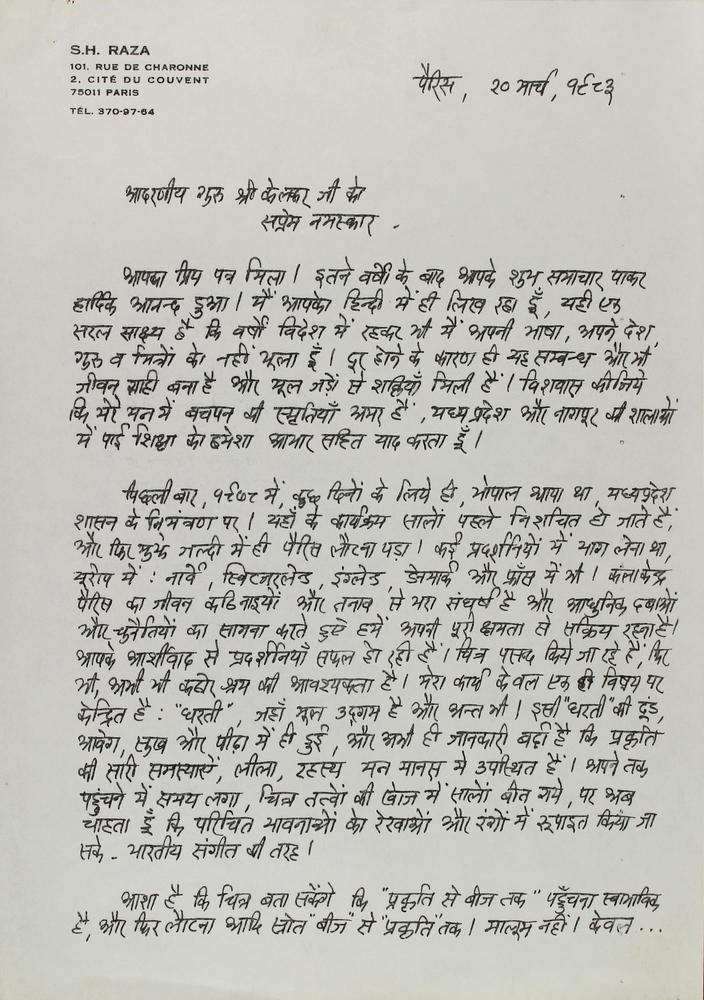 S.H. RAZA
101, RUE DE CHARONNE
2, CITÉ DU COUVENT
75011 PARIS
TÉL. 370-97-64
पैरिस, २० मार्च, १९८३
आदरणीय गुरु श्री केलकर जी को
सप्रेम नमस्कार .
आपका प्रिय पत्र मिला। इतने वर्षों के बाद आपके शुभ समाचार पाकर
हार्दिक आनन्द हुआ। मैं आपको हिन्दी में ही लिख रहा हूँ, यही एक
सरल साक्ष्य है कि वर्षों विदेश में रहकर भी मैं अपनी भाषा, अपने देश,
गुरु व मित्रों को नहीं भूला हूँ। दूर होने के कारण ही यह सम्बन्ध और भी
जीवन ग्राही बना है और मूल जड़ों से शक्तियाँ मिली हैं। विश्वास कीजिये
कि मेरे मन में बचपन की स्मृतियाँ अमर हैं, मध्यप्रदेश और नागपूर की शालाओं
में पाई शिक्षा को हमेशा आभार सहित याद करता हूँ।
पिछली बार, १९७८ में, कुछ दिनों के लिये ही, भोपाल आया था, मध्यप्रदेश
शासन के निमंत्रण पर। यहाँ के कार्यक्रम सालों पहले निश्चित हो जाते हैं,
और फिर मुझे जल्दी में ही पैरिस लौटना पड़ा। कई प्रदर्शनियों में भाग लेना था,
यूरोप में : नार्वे, स्विटज़रलेन्ड, इंग्लेन्ड, डेनमार्क और फ्राँस में भी। कलाकेन्द्र
पैरिस का जीवन कठिनाइयों और तनाव से भरा संघर्ष है और आधुनिक दबाओं
और चुनौतियों का सामना करते हुऐ हमें अपनी पूरी क्षमता से सक्रिय रहना है।
आपके आर्शीवाद से प्रदर्शनियाँ सफल हो रही हैं। चित्र पसंद किये जा रहे हैं, फिर
भी, अभी भी कठोर श्रम की आवश्यकता है। मेरा कार्य केवल एक ही विषय पर
केन्द्रित है : "धरती", जहाँ मूल उद्गम है और अन्त भी। इसी "धरती" की ढूंड,
आवेग, सुख और पीड़ा में ही हुई, और अभी ही जानकारी बढ़ी है कि प्रकृति
की सारी समस्याऐं, लीला, रहस्य मन मानस में उपस्थित हैं। अपने तक
पहुंचने में समय लगा, चित्र तत्वों की खोज में सालों बीत गये, पर अब
चाहता हूँ कि परिचित भावनाओं को रेखाओं और रंगों में रूपाइत किया जा
सके - भारतीय संगीत की तरह।
आशा है कि चित्र बता सकेंगे कि "प्रकृति से बीज तक" पहुँचना स्वाभाविक
है, और फिर लौटना आदि स्त्रोत "बीज" से "प्रकृति" तक। मालूम नहीं। केवल ...